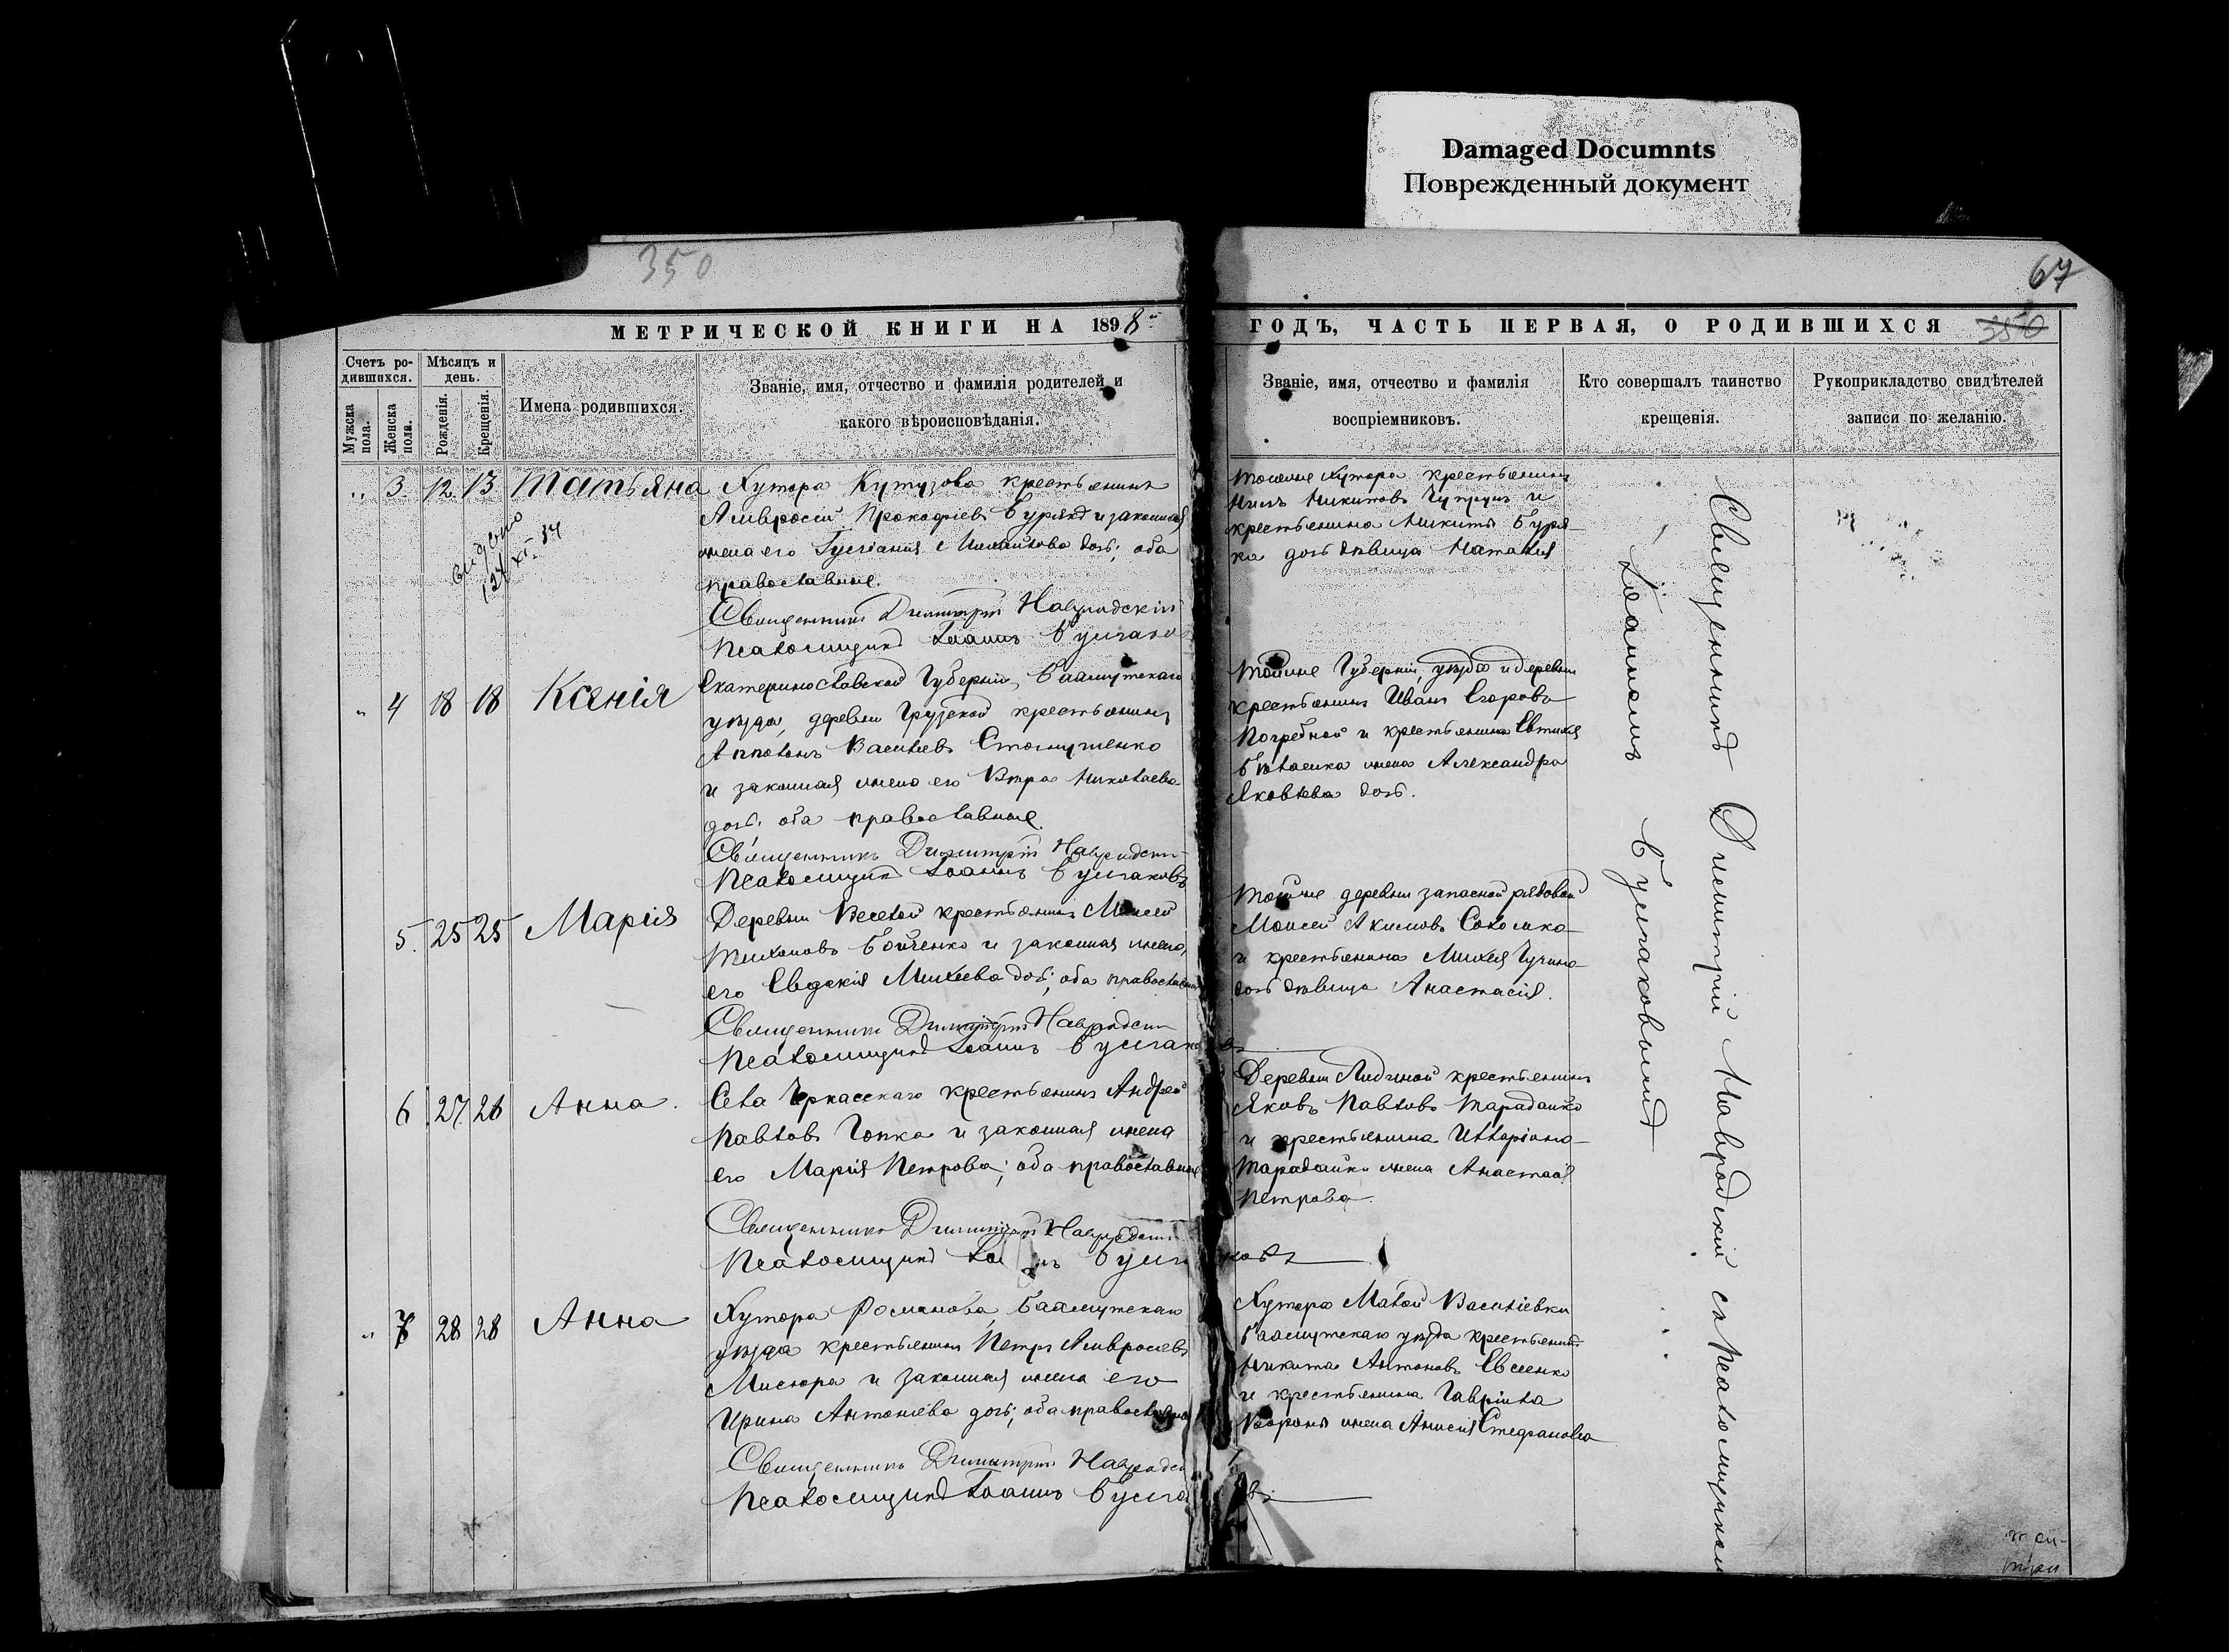 Damaged Documnts
Поврежденный документ
350
67
МЕТРИЧЕСКОЙ КНИГИ НА 1898й
ГОДЪ, ЧАСТЬ ПЕРВАЯ, О РОДИВШИХСЯ
350
Счетъ ро-
дившихся.
Мѣсяцъ и
день.
Мужска
пола.
Женска
пола.
Рожденія.
Крещенія.
Имена родившихся.
Званіе, имя, отчество и фамилія родителей и
какого вѣроисповѣданія.
Званіе, имя, отчество и фамилія
воспріемниковъ.
Кто совершалъ таинство
крещенія.
Рукоприкладство свидѣтелей
записи по желанію.
„ 3 12 13 Татьяна
Хутора Кутузова крестьянинъ
Амвросій Прокофіевъ Бурякъ и законная
жена его дочь; оба
православные.
Священникъ Димитрій Навродскій
Псаломщикъ Іоаннъ Бушаковъ
Тогоже хутора крестьянинъ
Никитовъ и
крестьянина Никиты Буря-
ка дочь дѣвица Наталія
выдано
„ 4 18 18 Ксенія
Екатеринославской Губерніи, Бахмутскаго
уѣзда, деревни Грузской крестьянинъ
Васильевъ
и законная жена его Вѣра Николаева
дочь; оба православные.
Священникъ Димитрій Навродскій
Псаломщикъ Іоаннъ Бушаковъ
Тойже Губерніи, уѣзда и деревни
крестьянинъ Иванъ Егоровъ
Погребной и крестьянина Евтихія
жена Александра
Яковлева дочь.
5. 25 25 Марія
Деревни Веселой крестьянинъ Моисей
Тихоновъ Бойченко и законная жена
его Евдокія Михеева дочь; оба православные
Священникъ Димитрій Навродскій
Псаломщикъ Іоаннъ Бушаковъ
Тойже деревни запасной рядовой
Моисей Акимовъ
и крестьянина Михея
дочь дѣвица Анастасія.
6 27 28 Анна.
Села Черкасскаго крестьянинъ Андрей
Павловъ Гопка и законная жена
его Марія Петрова; оба православные
Священникъ Димитрій Навродскій
Псаломщикъ Іоаннъ Бушаковъ
Деревни крестьянинъ
Яковъ Павловъ Тарадайко
и крестьянина Илларіона
Тарадайки жена Анастасія
Петрова.
„ 7 28 28 Анна
Хутора Романова, Бахмутскаго
уѣзда крестьянинъ Петръ Амвросіевъ
Мисюра и законная жена его
Ирина Антоніева дочь; оба православные
Священникъ Димитрій Навродскій
Псаломщикъ Іоаннъ Бушаковъ
Хутора Малой Васильевки
Бахмутскаго уѣзда крестьянинъ
Никита Антоновъ Евсеенко
и крестьянина Гавріила
Вороны жена Анисія Стефанова
Священникъ Димитрій Навродскій съ псаломщикомъ
Іоанномъ Бушаковымъ